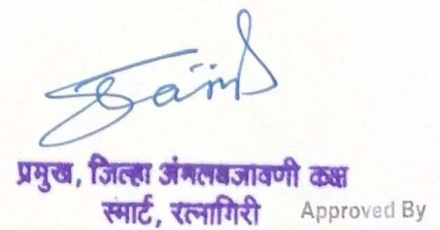 प्रमुख, जिल्हा अंमलबजावणी कक्ष
स्मार्ट, रत्नागिरी Approved By